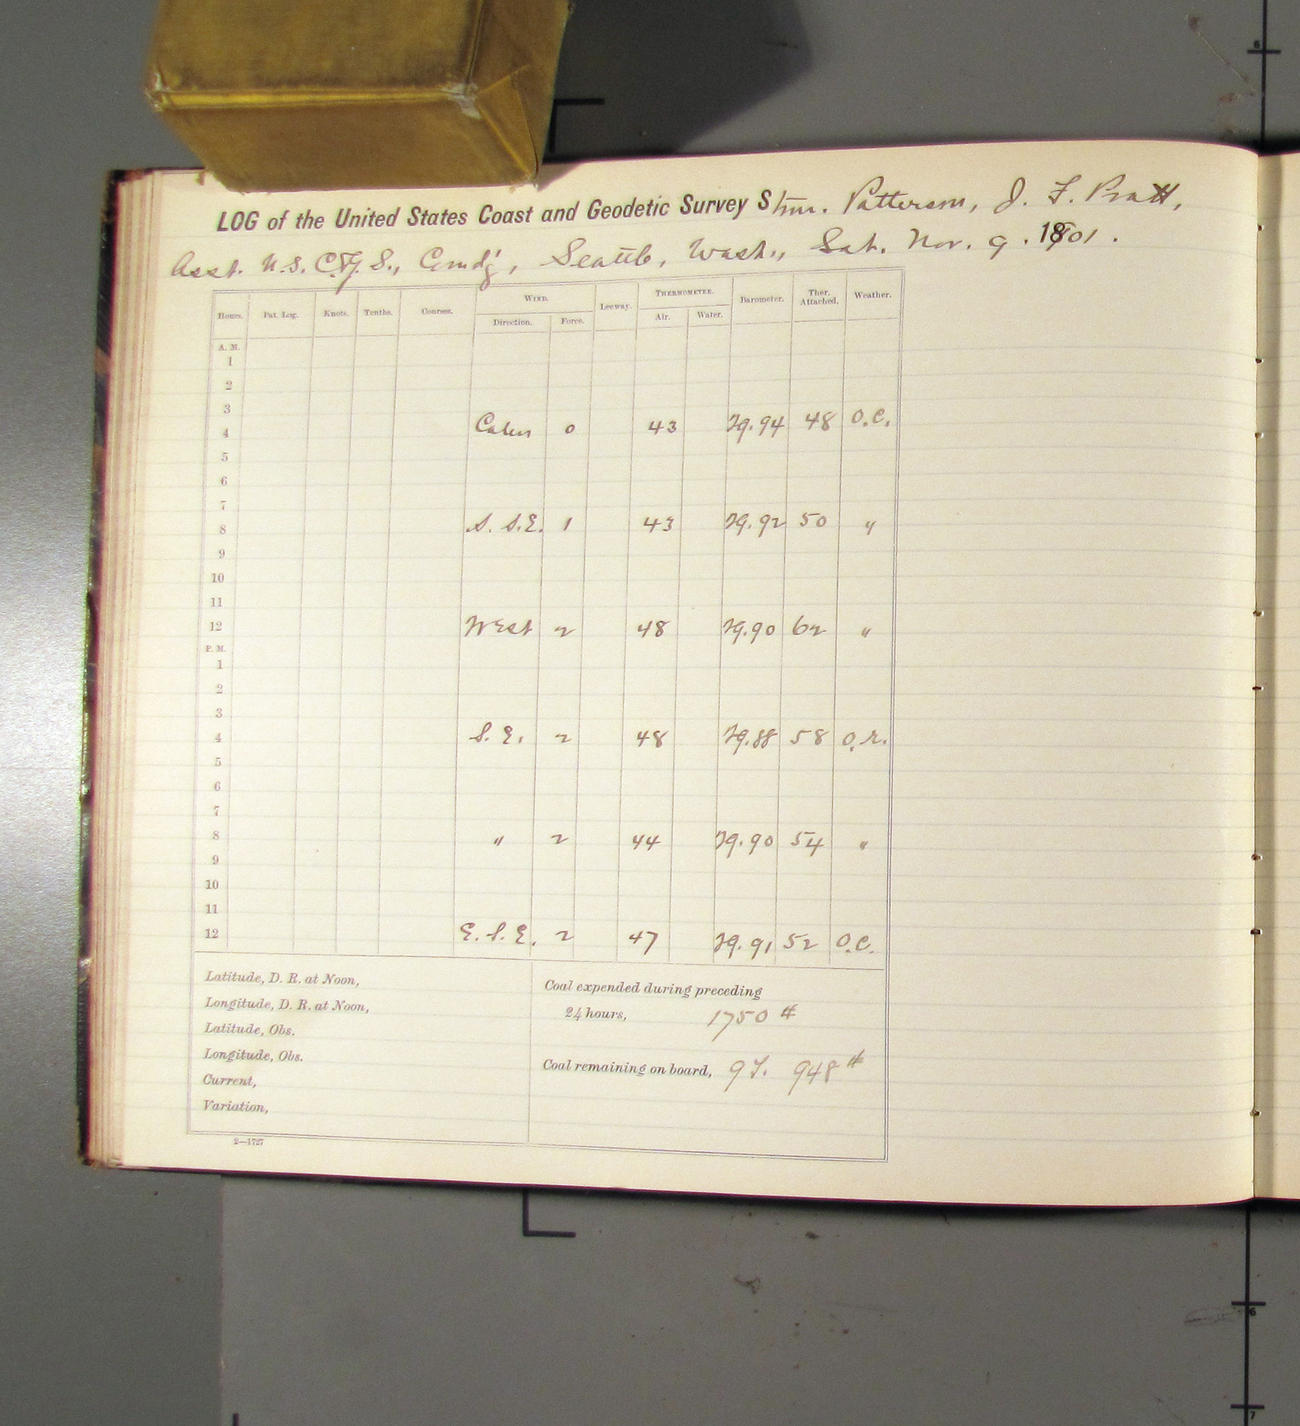 LOG of the United States Coast and Geodetic Survey Stmr. Patterson, J. F. Pratt,
Asst. U.S. C. & G. S., Comdg, Seattle, Wash., Sat. Nov. 9. 1901.
Hours. Pat. Log. Knots. Tenths. Courses. WIND. Leeway. THERMOMETER. Barometer. Ther. Attached. Weather.
Direction. Force. Air. Water.
A. M.
1
2
3
4 Calm 0 43 29.94 48 O.C.
5
6
7
8 S. S.E. 1 43 29.92 50 "
9
10
11
12 West 2 48 29.90 62 "
P. M.
1
2
3
4 S. E. 2 48 29.88 58 O.R.
5
6
7
8 " 2 44 29.90 54 "
9
10
11
12 E. S. E. 2 47 29.91 52 O.C.
Latitude, D. R. at Noon,
Longitude, D. R. at Noon,
Latitude, Obs.
Longitude, Obs.
Current,
Variation,
Coal expended during preceding
24 hours, 1750 #
Coal remaining on board, 9 T. 948 #
2—1727
6
6
7